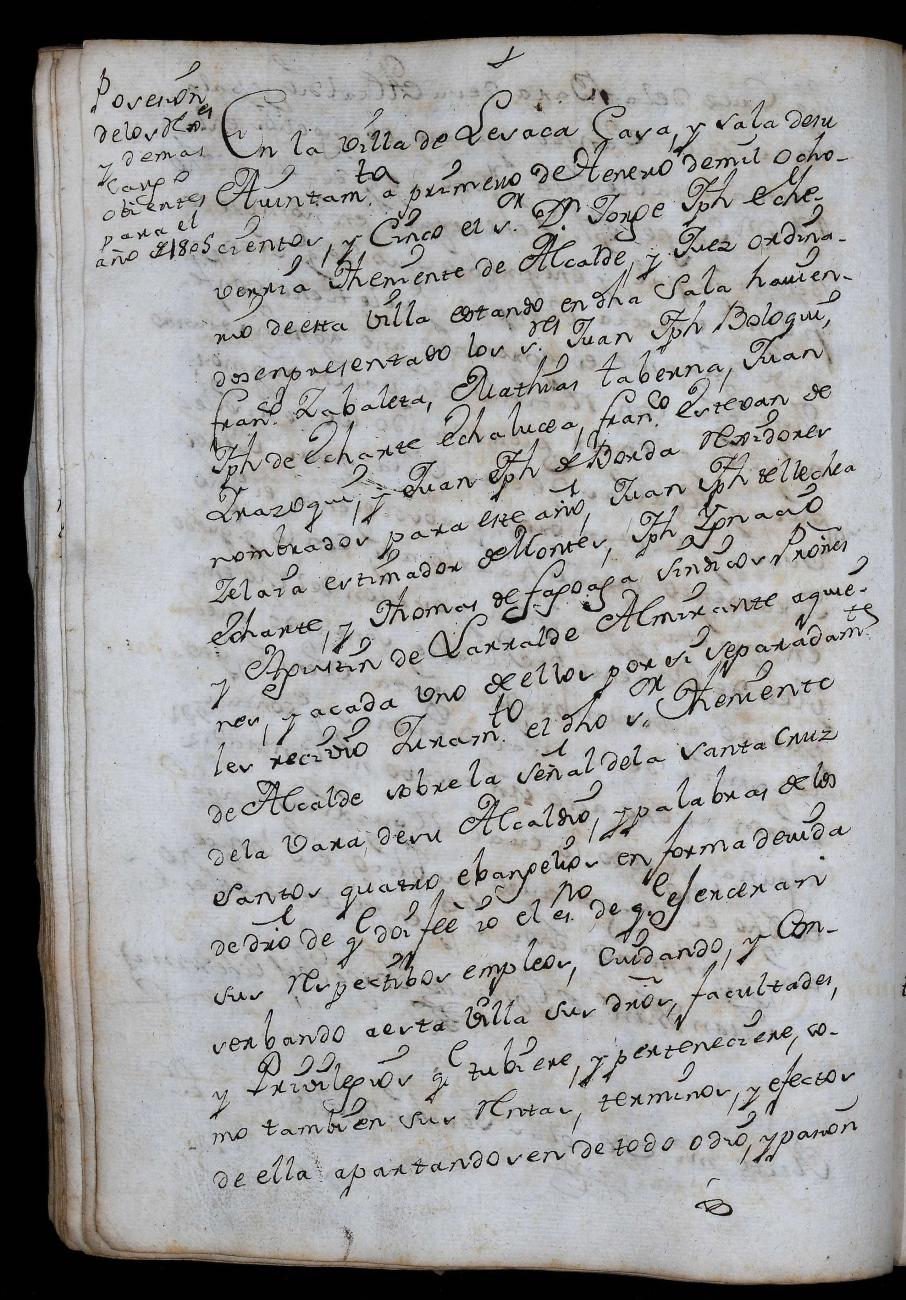 Posesión
de los SSres
y demas
Cargo
obientes
para el
año de 1805
En la Villa de Lesaca Casa, y sala desu
Auintamto. a primero de Henero demil ocho-
cientos, y Cinco el sr. Dn Jorge Jph Eche-
verria Theniente de Alcalde, y Juez ordina-
rio deesta Villa estando endha Sala havien-
dosenpresentado los sres Juan Jph Boloqui,
Franco. Zabaleta, Mathias taberna, Juan
Jph de Echarte Echalucea, Franco Estevan de
Irazoqui, y Juan Jph de Borda Rexidores
nombrados para este año, Juan Jph tellechea
Zelaia estimador de Montes, Jph Ygnacio
Echarte, y Thomas de Fagoaga sindicos Prôres
y Agustin de Larralde Almirante aquie-
nes, y acada Uno de ellos por si separadamte
les recivió Juramto. el dho sr. Theniente
de Alcalde sobre la señal dela santa Cruz
dela Vara desu Alcaldio, y palabras de los
santos quatro ebangelios en forma devida
de dro de q doi feé io el esno. de q. esercerari
sus Respectibos empleos, Cuidando, y Con-
serbando aesta Villa sus dros, facultades,
y Privilegios q tubiere, y perteneciere, co-
mo tambien sus Rentas, terminos, y efectos
de ella apartandosen de todo odio, y pasion